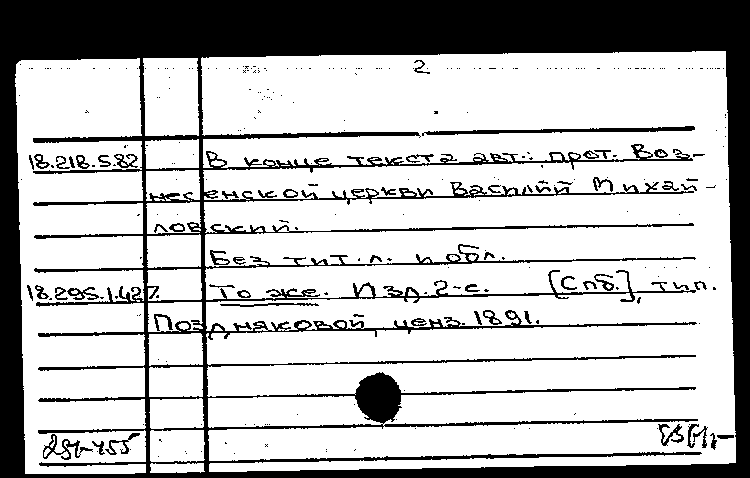 2
18.218.5.82 В конце текста авт.: прот. Воз-
несенской церкви Василий Михай-
ловский.
Без тит. л. и обл.
18.295.1.427. То же. Изд. 2-е. [Спб.], тип.
Поздняковой, ценз. 1891.